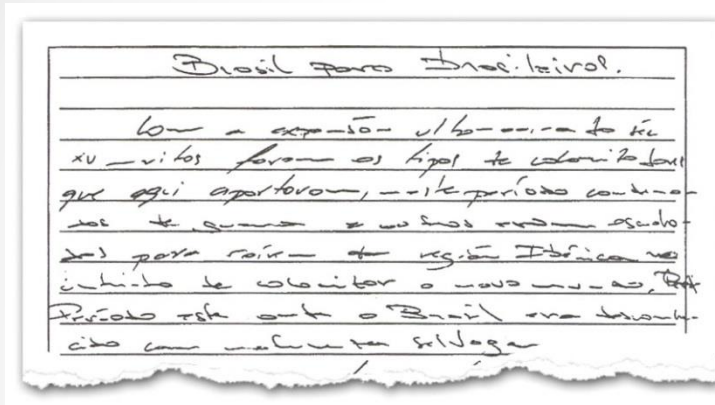 Brasil para Brasileiros.
Com a expansão ultramarina do séc
XV muitos foram os tipos de colonizadores
que aqui aportaram, neste período condena-
dos de guerra e
para saírem da região Ibérica no
intuito de colonizar o novo mundo.
Período este onde o Brasil era desconhe-
cido com selvagem